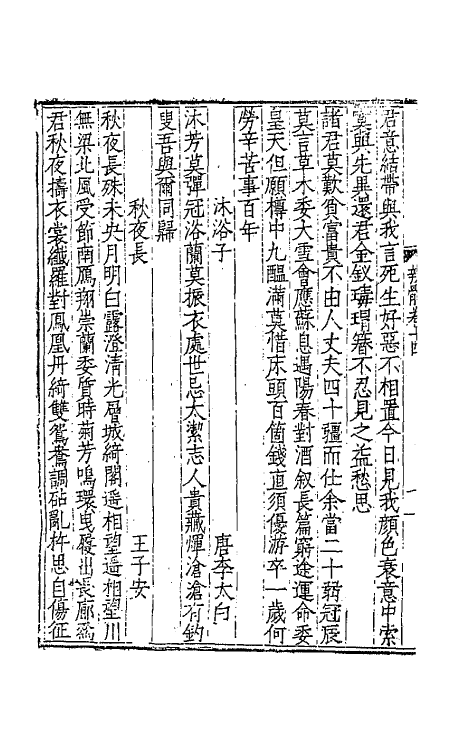 君意結帶與我言死生好惡不相置今日見我顔色衰意中索
寞與先異還君金釵瑇瑁簪不忍見之益愁思
諸君莫歎貧富貴不由人丈夫四十彊而仕余當二十弱冠辰
莫言草木委大雪會應蘇息遇陽春對酒叙長篇窮途運命委
皇天但願樽中九醞滿莫惜床頭百箇錢直須優游卒一歲何
勞辛苦事百年
沐浴子 唐李太白
沐芳莫彈冠浴蘭莫振衣處世忌太潔志人貴藏輝滄滄有釣
叟吾與爾同歸
秋夜長 王子安
秋夜長殊未央月明白露澄清光層城綺閣遥相望遥相望川
無梁北風受節南鴈翔崇蘭委質時菊芳鳴環曳履出長廊爲
君秋夜擣衣裳纖羅對鳳凰丹綺雙鴛鴦調砧亂杵思自傷征
卷十四